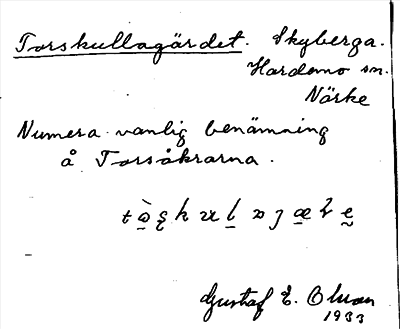 Torskullagärdet. Skyberga.
Hardemo sn.
Närke
Numera vanlig benämning
å Torsåkrarna.
Gustaf E. Olsson
1933